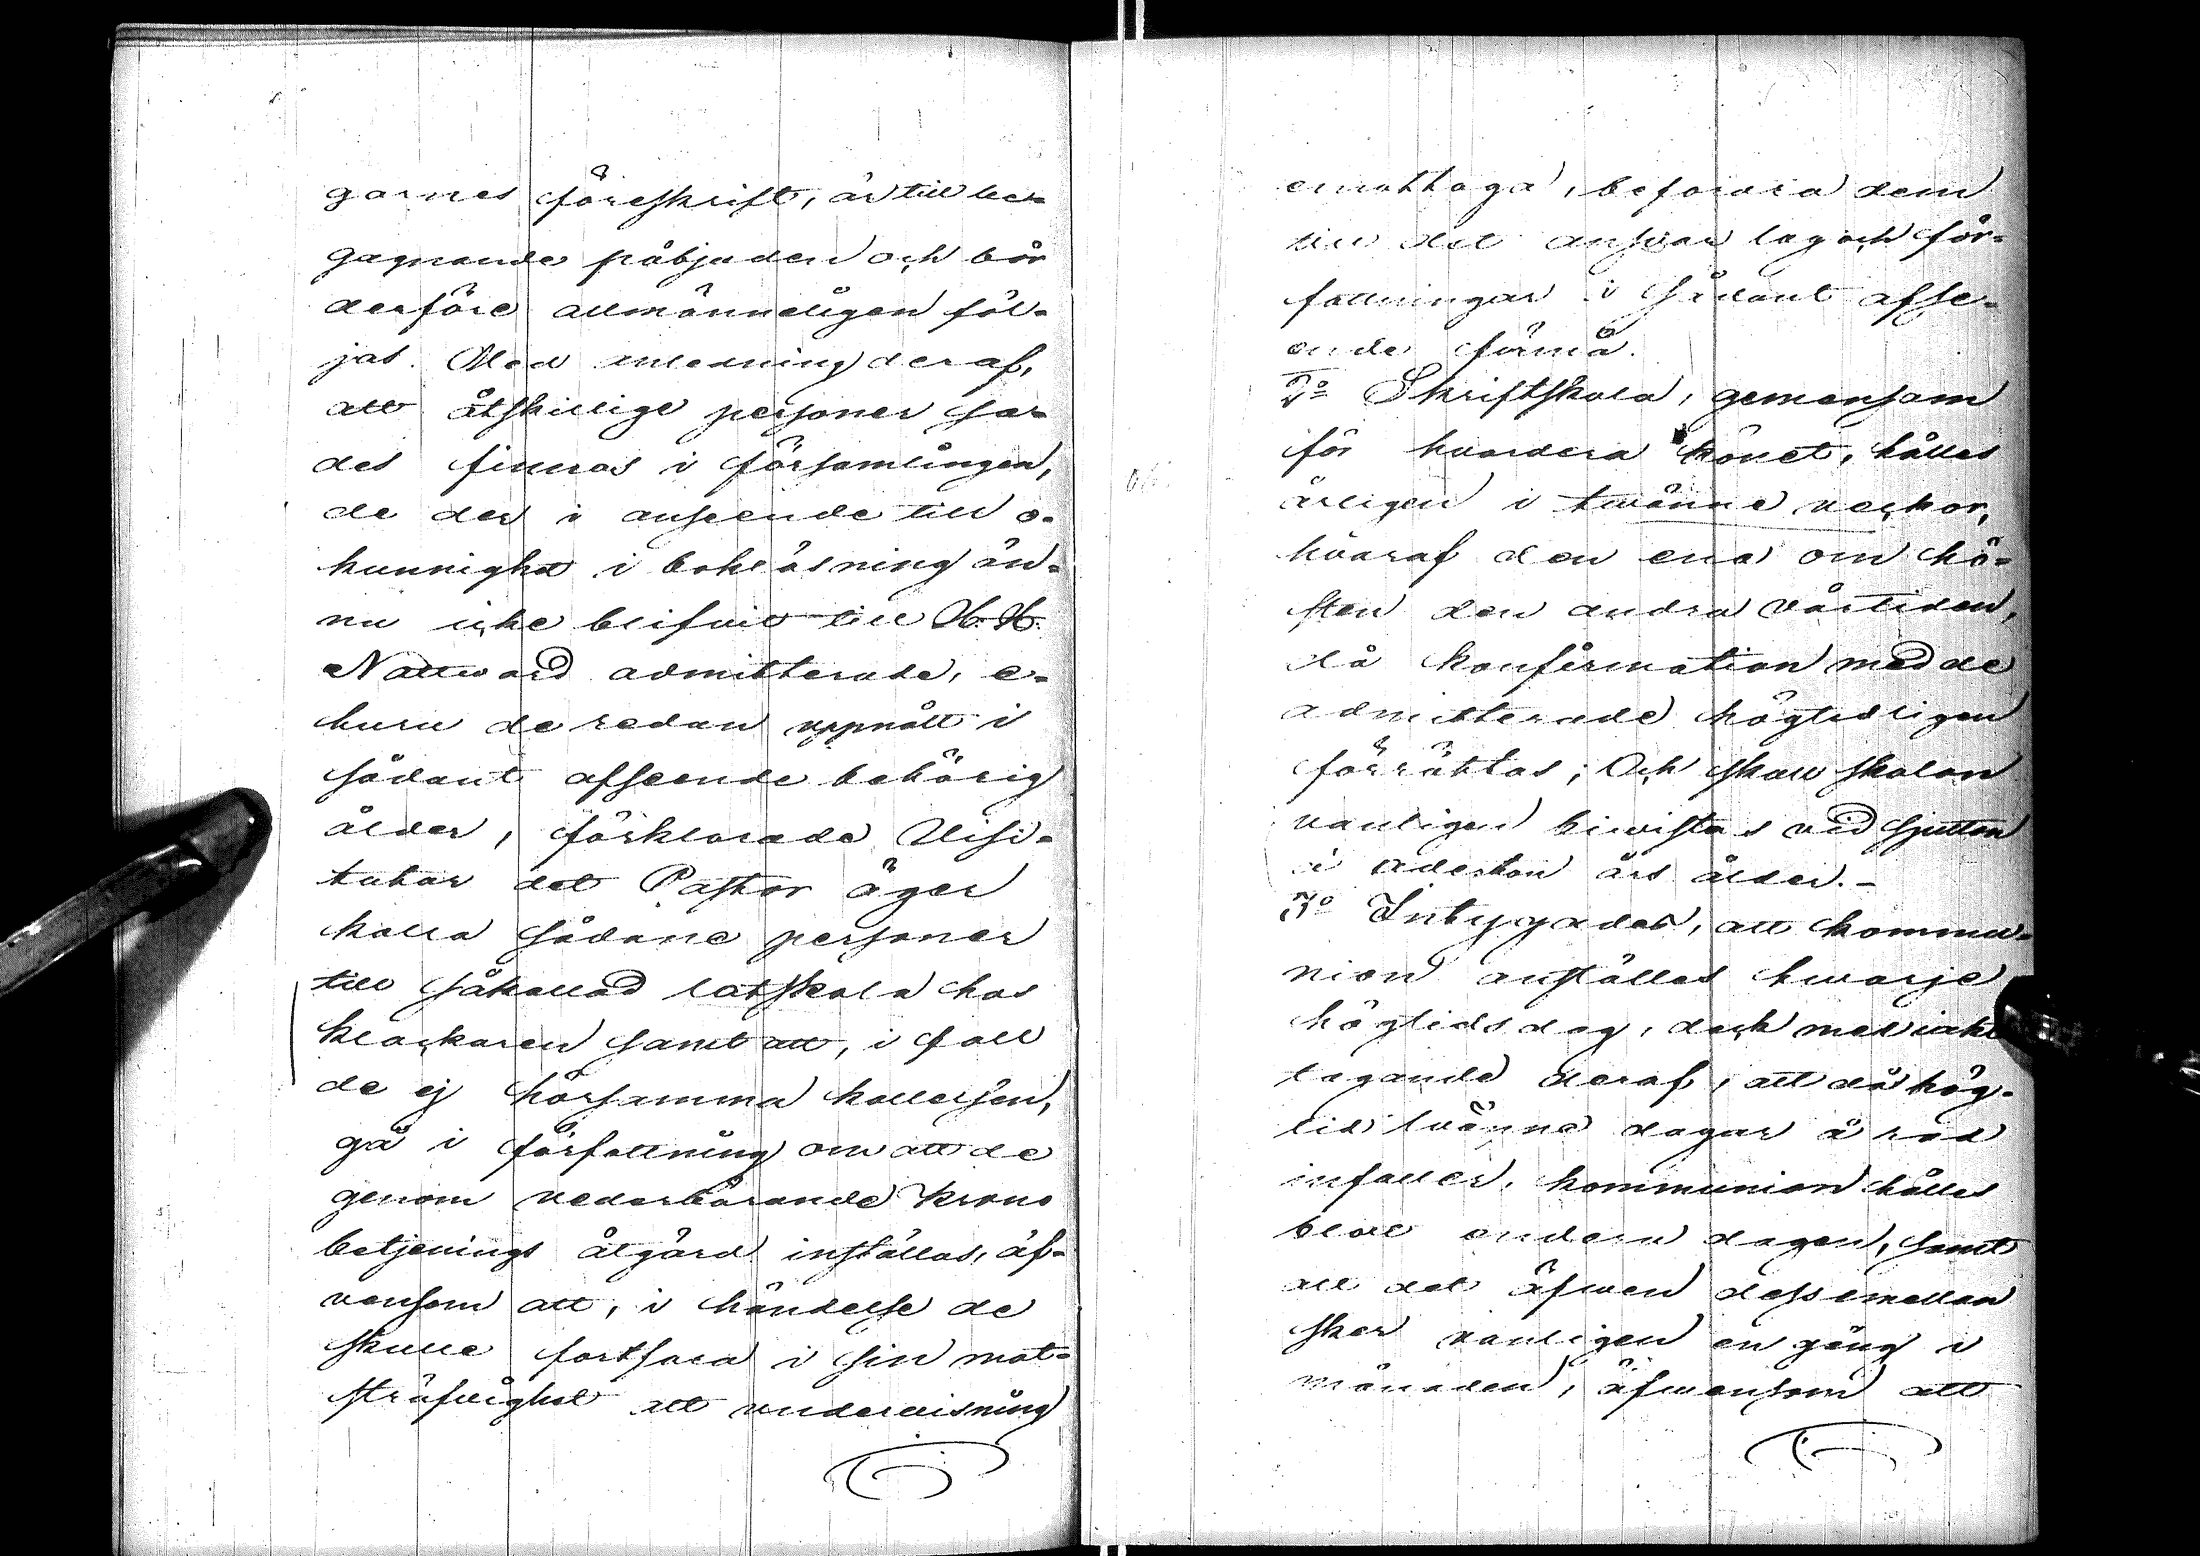 garnes föreskrift, är till be-
gagnande påbjuden och bör
derföre allmänneligen föl-
jas. Med anledning deraf,
att åtskillige personer sär-
des finnas i församlingen,
de der i anseende till o-
kunnighet i bokläsning än-
nu icke blifwit till H. H.
Nattward admitterade, e-
huru de redan uppnått i
sådant afseende behörig
ålder, förklarade Visi-
tator det Pastor äger
kalla sådane personer
till såkallad latskola hos
klockaren samt att, i fall
de ej hörsamma kallelsen,
gå i författning om att de
genom vederbörande krono
betjenings åtgärd inställas, äf-
vensom att, i händelse de
skulle fortfara i sin mot-
sträfvighet att undervisning
emottaga, befordra dem
till det answar lag och för-
fattningar i sådant afse-
ende förmå.
2:o Skriftskola, gemensam
för hvardera könet, hålles
årligen i twänne veckor,
hvaraf den ena om hö-
sten den andra vårtiden,
då konfirmation med de
admitterade högtidligen
förrättas; Och skall skolan
vanligen biwistas vid sjutton
à aderton års ålder.-
3:o Intygades, att kommu-
nion anställes hwarje
högtidsdag, dock med iakt
tagande deraf, att då hög-
tid tvänne dagar å rad
infaller, kommunion hålles
blott andra dagen, samt
att det äfwen dessemellan
sker vanligen en gång i
månaden, äfwensom att